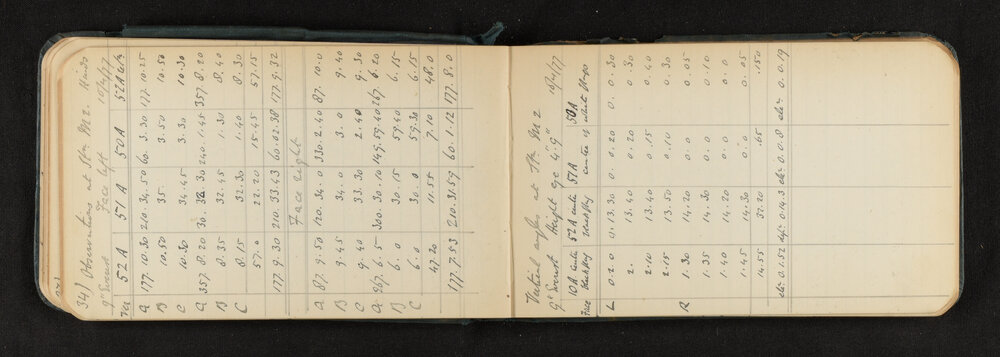 34) Observations at Stn M2. Hinds
9" Everest Face left 10/4/77
52A 51A 50A 52A
A 177.10.30 210.34.50 60.3.30 177.10.25
B 10.50 35. 3.50 10.50
C 10.30 34.45 3.30 10.30
A 357.8.20 30.32.30 240.1.45 357.8.20
B 8.35 32.45 1.30 8.40
C 8.15 32.30 1.40 8.30
57.0 22.20 15.45 57.15
177.9.30 210.33.43 60.02.38 177.9.32
Face right
A 87.9.50 120.34.0 330.2.40 87.10.0
B 9.45 34.0 3.0 9.40
C 9.40 33.30 2.40 9.30
A 267.6.5 300.30.10 149.59.40 267.6.20
B 6.0 30.15 59.40 6.15
C 6.0 30.0 59.30 6.15
47.20 11.55 7.10 48.0
177.7.53 210.31.59 60.1.12 177.8.0
Vertical angles at Stn M2
9" Everest Height 4'.9" 10/4/77
10A centre 52A centre 51A 50A
Face black flag black flag centre of white flags
L 0.2.0 0.13.30 0.0.20 0.0.30
2. 13.40 0.20 0.30
2.10 13.40 0.15 0.40
2.15 13.50 0.10 0.30
R 1.30 14.20 0.0 0.05
1.35 14.30 0.0 0.10
1.40 14.20 0.0 0.0
1.45 14.30 0.0 0.05
14.55 .65 .150
elv. 0.1.52 dep. 0.14.3 elv. 0.0.8 elv. 0.0.19